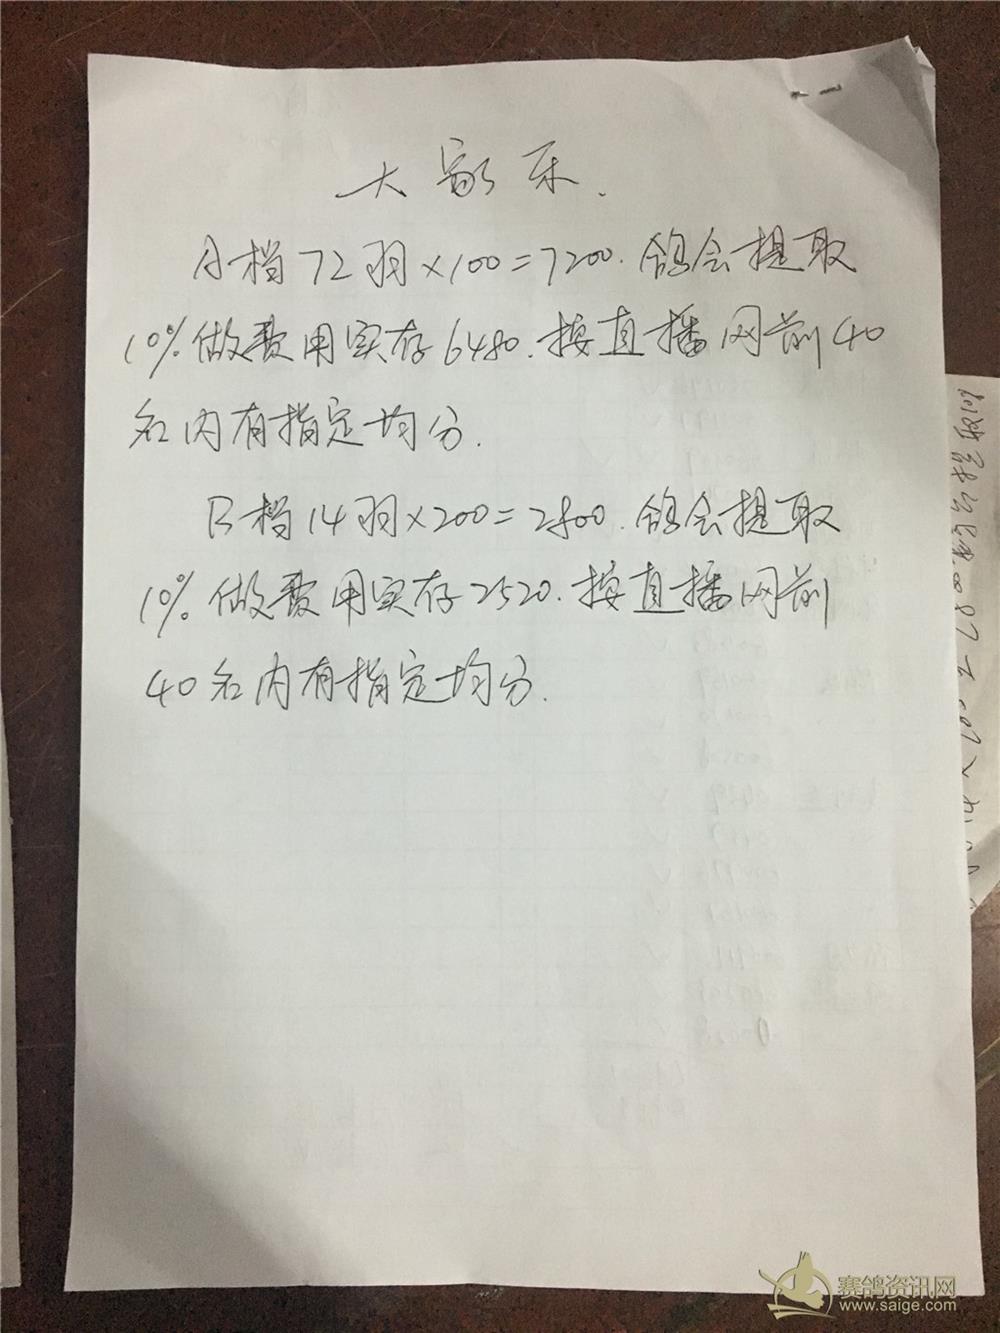 大家乐.
A档72羽×100=7200.鸽会提取
10%做费用实存6480.按直播网前40
名内有指定均分.
B档14羽×200=2800.鸽会提取
10%做费用实存2520.按直播网前
40名内有指定均分.
赛鸽资讯网
www.saige.com